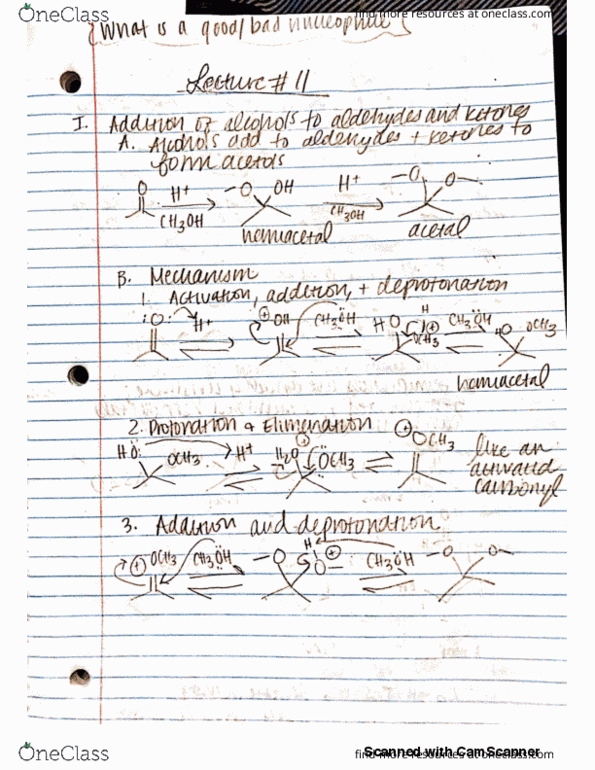 OneClass
find more resources at oneclass.com
{What is a good/bad nucleophile}
Lecture #11
I. Addition of alcohols to aldehydes and ketones
A. Alcohols add to aldehydes + ketones to
form acetals
O H+ -O OH H+ -O O-
CH3OH CH3OH
hemiacetal acetal
B. Mechanism
1. Activation, addition, + deprotonation
:O: H+ ⊕OH CH3ÖH HO H ⊕ OCH3 CH3ÖH HO OCH3
hemiacetal
2. Protonation & Elimination
HÖ: OCH3 H+ H2O ⊕ ÖCH3 ⊕OCH3 like an
activated
carbonyl
3. Addition and deprotonation
⊕ OCH3 CH3ÖH -O H O ⊕ CH3ÖH -O O-
OneClass
Scanned with CamScanner
find more resources at oneclass.com